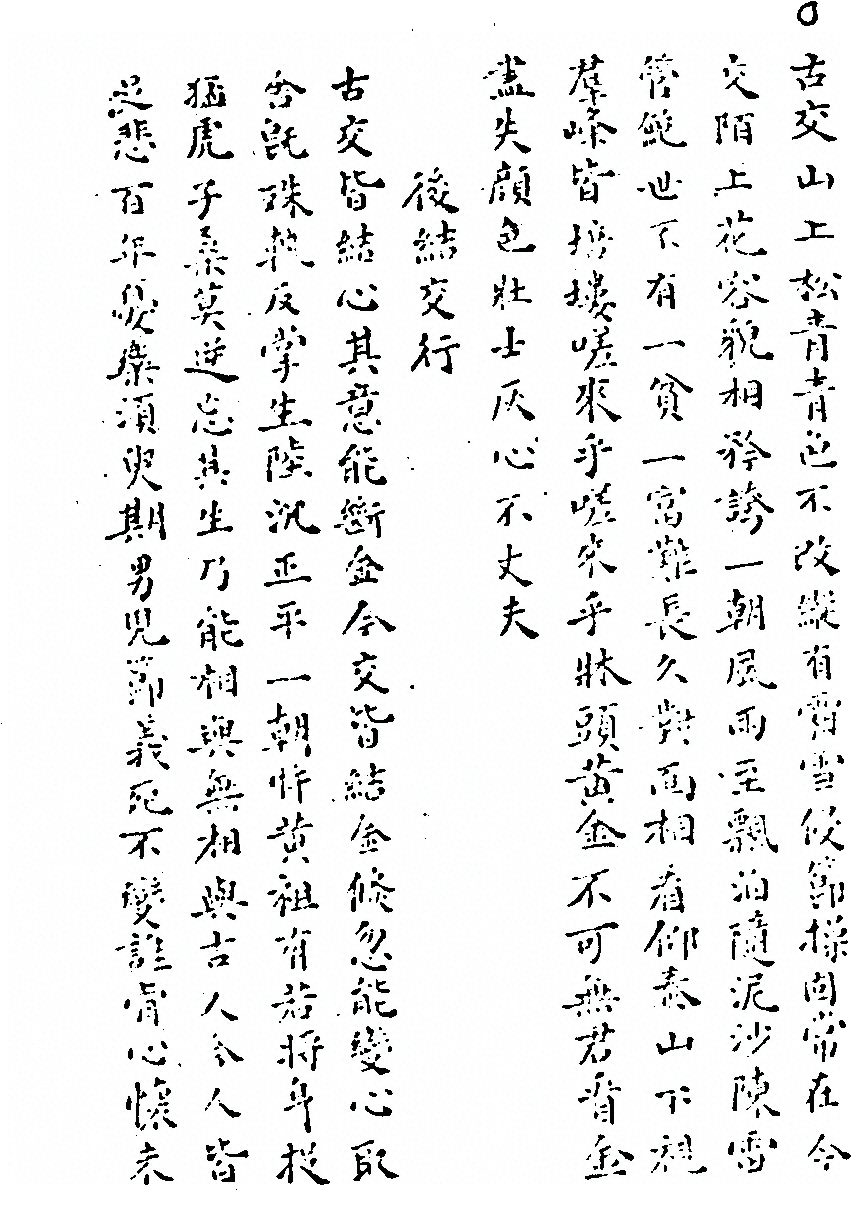 古交山上松青青色不改縱有霜雪侵節操固常在今
交陌上花容貌相矜誇一朝風雨至飄泊隨泥沙陳雷
管鮑世不有一貧一富難長久對面相看仰泰山下視
羣峰皆培塿嗟來乎嗟來乎牀頭黃金不可無君看金
盡失顏色壯士灰心不丈夫
後結交行
古交皆結心其意能斷金今交皆結金倏忽能變心取
舍既殊軌反掌生陸沉正平一朝忤黃祖有若將身投
猛虎子桑莫逆忘其生乃能相與無相與古人今人皆
足悲百年憂樂須臾期男兒節義死不變誰肯心懷未